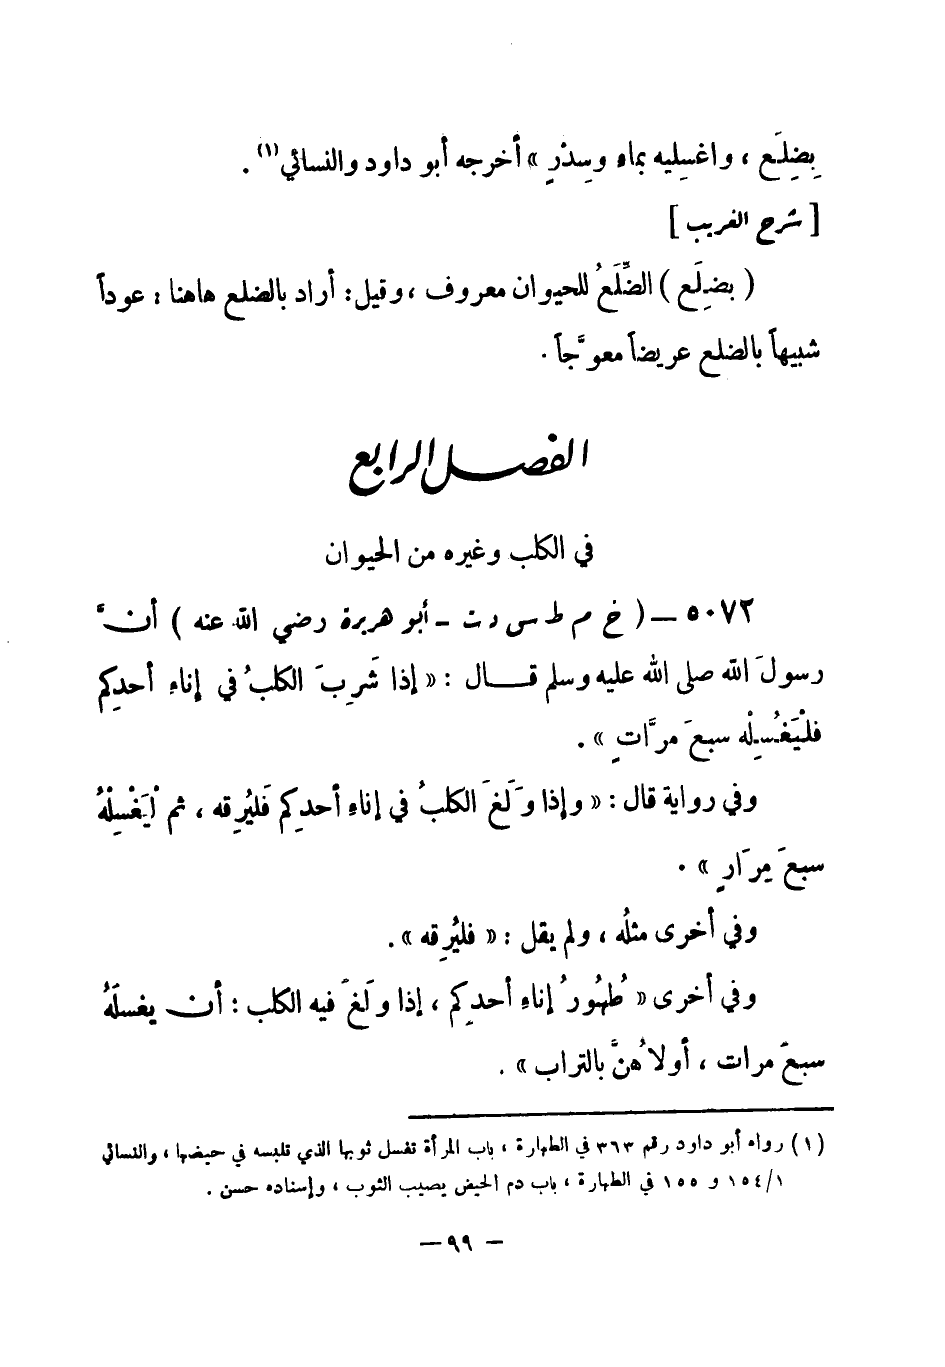 بِضِلَع ، واغسِليه بماء وسِدْرٍ » أخرجه أبو داود والنسائي (١) .
[ شرح الغريب ]
( بضِلَع ) الضِّلَعُ للحيوان معروف ، وقيل : أراد بالضلع هاهنا : عوداً
شبيهاً بالضلع عريضاً معوَّجاً .
الفصل الرابع
في الكلب وغيره من الحيوان
٥٠٧٢ — ( خ م ط س د ت - أبو هريرة رضي الله عنه ) أنَّ
رسولَ الله صلى الله عليه وسلم قال : « إذا شَرِبَ الكلبُ في إناءِ أحدِكم
فلْيَغْسِلْه سبعَ مرَّاتٍ » .
وفي رواية قال : « وإذا وَلَغَ الكلبُ في إناءِ أحدِكم فَليُرِقه ، ثم لْيَغْسِلْهُ
سبعَ مِرَارٍ » .
وفي أخرى مثلُه ، ولم يقل : « فليُرِقه » .
وفي أخرى « طُهُورُ إناءِ أحدِكم ، إذا ولَغَ فيه الكلب : أن يغسلَهُ
سبعَ مرات ، أولاهُنَّ بالتراب » .
(١) رواه أبو داود رقم ٣٦٣ في الطهارة ، باب المرأة تغسل ثوبها الذي تلبسه في حيضها ، والنسائي
١٥٤/١ و ١٥٥ في الطهارة ، باب دم الحيض يصيب الثوب ، وإسناده حسن .
— ٩٩ —